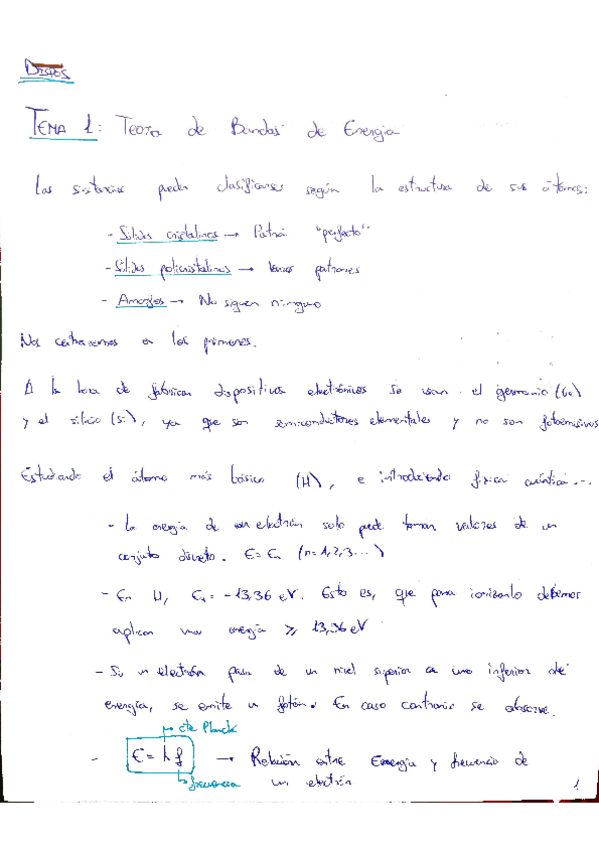 DISPOS
TEMA 1: Teoría de Bandas de Energía
Las sustancias pueden clasificarse según la estructura de sus átomos:
- Sólidos cristalinos → Patrón "perfecto"
- Sólidos policristalinos → Varios patrones
- Amorfos → No siguen ninguno
Nos centraremos en los primeros.
A la hora de fabricar dispositivos electrónicos se usan el germanio (Ge)
y el silicio (Si), ya que son semiconductores elementales y no son fotoemisivos
Estudiando el átomo más básico (H), e introduciendo física cuántica...
- La energía de un electrón solo puede tomar valores de un
conjunto discreto. E = En (n=1,2,3...)
- En H, E1 = -13,36 eV. Esto es, que para ionizarlo debemos
aplicar una energía ≥ 13,36 eV
- Si un electrón pasa de un nivel superior a uno inferior de
energía, se emite un fotón. En caso contrario se absorve.
→ cte Planck
- E = h f → Relación entre Energía y frecuencia de
→ frecuencia un electrón
1